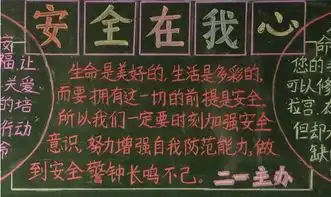 安全在我心
生命是美好的,生活是多彩的,
而要拥有这一切的前提是安全,
所以我们一定要时刻加强安全
意识,努力增强自我防范能力,做
到安全警钟长鸣不己。
二一主办
福,让
关爱
的培
行动
命
您的
可以修
拉宫,
但却
缺